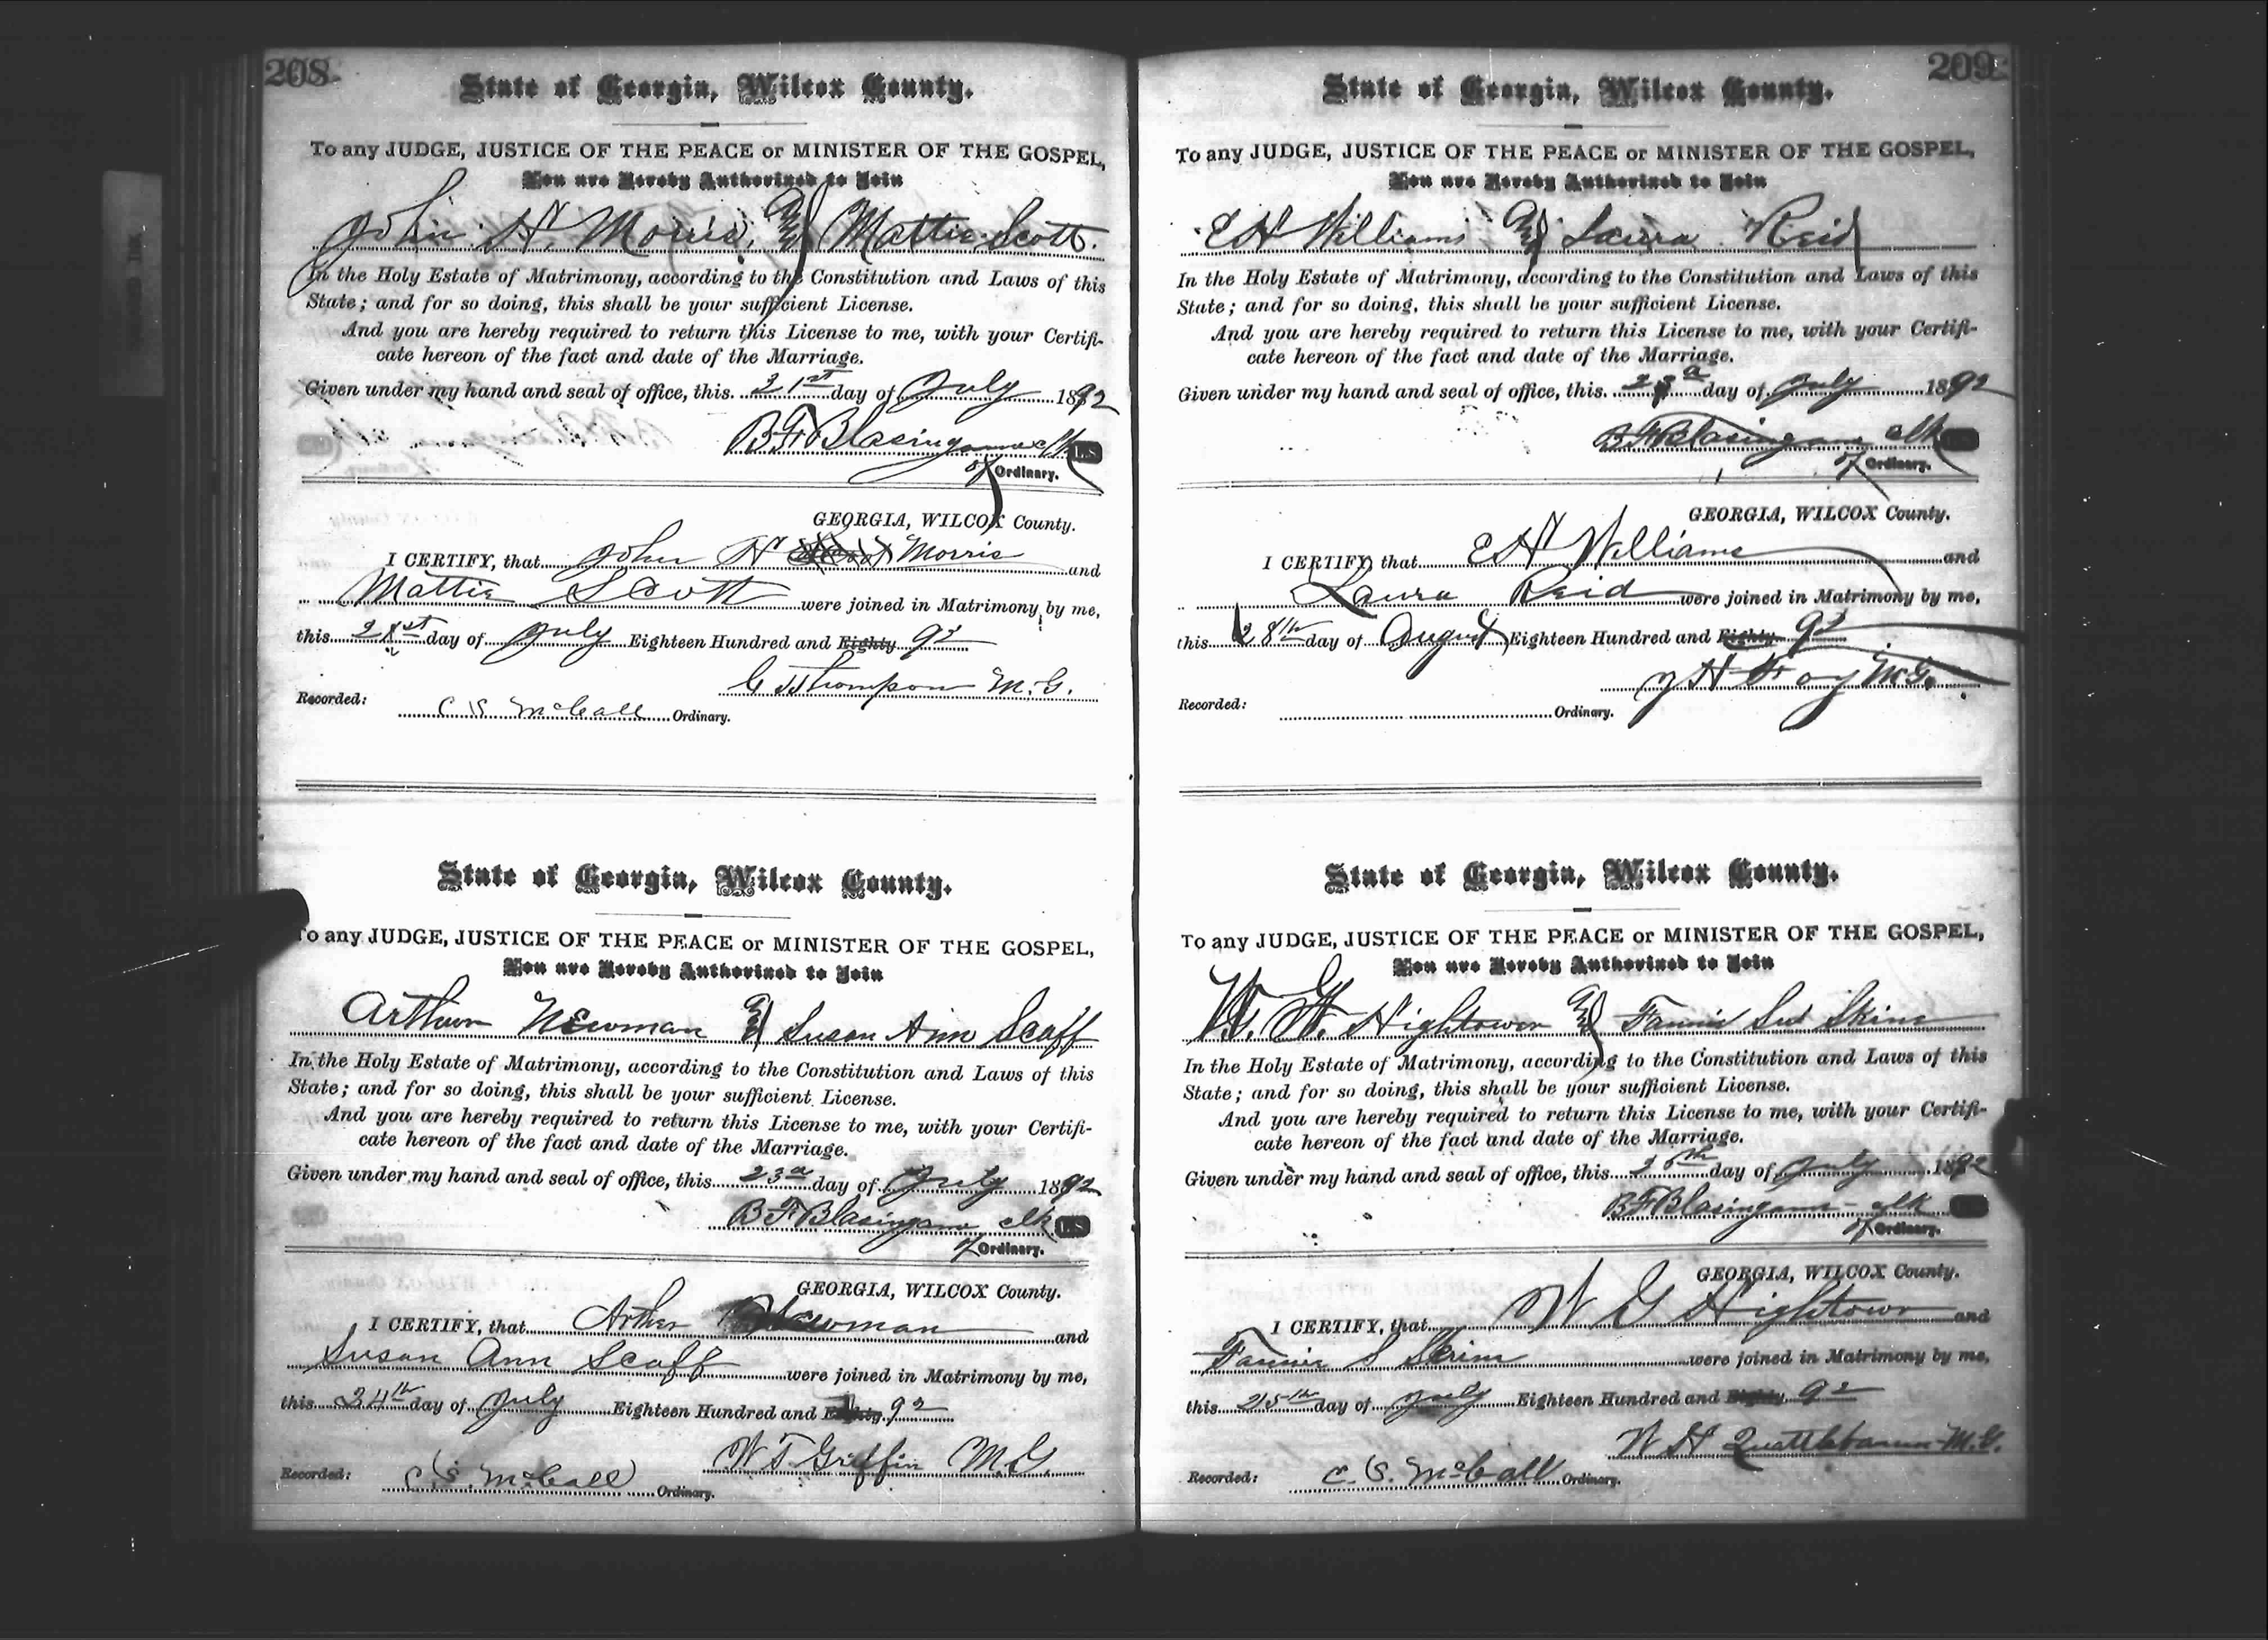 208
State of Georgia, Wilcox County.
To any JUDGE, JUSTICE OF THE PEACE or MINISTER OF THE GOSPEL,
You are Hereby Authorized to Join
John H. Morris, and Mattie Scott.
In the Holy Estate of Matrimony, according to the Constitution and Laws of this
State; and for so doing, this shall be your sufficient License.
And you are hereby required to return this License to me, with your Certifi-
cate hereon of the fact and date of the Marriage.
Given under my hand and seal of office, this 21st day of July 1892
B F Blasingame clk L.S
of Ordinary.
GEORGIA, WILCOX County.
I CERTIFY, that John H Morris and
Mattie Scott were joined in Matrimony by me,
this 21st day of July Eighteen Hundred and Eighty 92
Thompson M.G.
Recorded: C S McCall Ordinary.
State of Georgia, Wilcox County.
To any JUDGE, JUSTICE OF THE PEACE or MINISTER OF THE GOSPEL,
You are Hereby Authorized to Join
Arthur Newman and Susan Ann Scaff
In the Holy Estate of Matrimony, according to the Constitution and Laws of this
State; and for so doing, this shall be your sufficient License.
And you are hereby required to return this License to me, with your Certifi-
cate hereon of the fact and date of the Marriage.
Given under my hand and seal of office, this 23d day of July 1892
B F Blasingame clk L.S
of Ordinary.
GEORGIA, WILCOX County.
I CERTIFY, that Arther Newman and
Susan Ann Scaff were joined in Matrimony by me,
this 24th day of July Eighteen Hundred and Eighty 92
W T Griffin M.G.
Recorded: C S. McCall Ordinary.
209
State of Georgia, Wilcox County.
To any JUDGE, JUSTICE OF THE PEACE or MINISTER OF THE GOSPEL,
You are Hereby Authorized to Join
E H Williams and Laura Reid
In the Holy Estate of Matrimony, according to the Constitution and Laws of this
State; and for so doing, this shall be your sufficient License.
And you are hereby required to return this License to me, with your Certifi-
cate hereon of the fact and date of the Marriage.
Given under my hand and seal of office, this 23d day of July 1892
B F Blasingame clk
of Ordinary.
GEORGIA, WILCOX County.
I CERTIFY, that E H Williams and
Laura Reid were joined in Matrimony by me,
this 28th day of August Eighteen Hundred and Eighty 92
M.G.
Recorded: Ordinary.
State of Georgia, Wilcox County.
To any JUDGE, JUSTICE OF THE PEACE or MINISTER OF THE GOSPEL,
You are Hereby Authorized to Join
W. G. Hightower and Fannie Sue
In the Holy Estate of Matrimony, according to the Constitution and Laws of this
State; and for so doing, this shall be your sufficient License.
And you are hereby required to return this License to me, with your Certifi-
cate hereon of the fact and date of the Marriage.
Given under my hand and seal of office, this day of July 1892
B F Blasingame - clk
of Ordinary.
GEORGIA, WILCOX County.
I CERTIFY, that W G Hightower and
Fannie S were joined in Matrimony by me,
this 25th day of July Eighteen Hundred and Eighty 92
W H Quattlebaum M.G.
Recorded: C. S. McCall Ordinary.